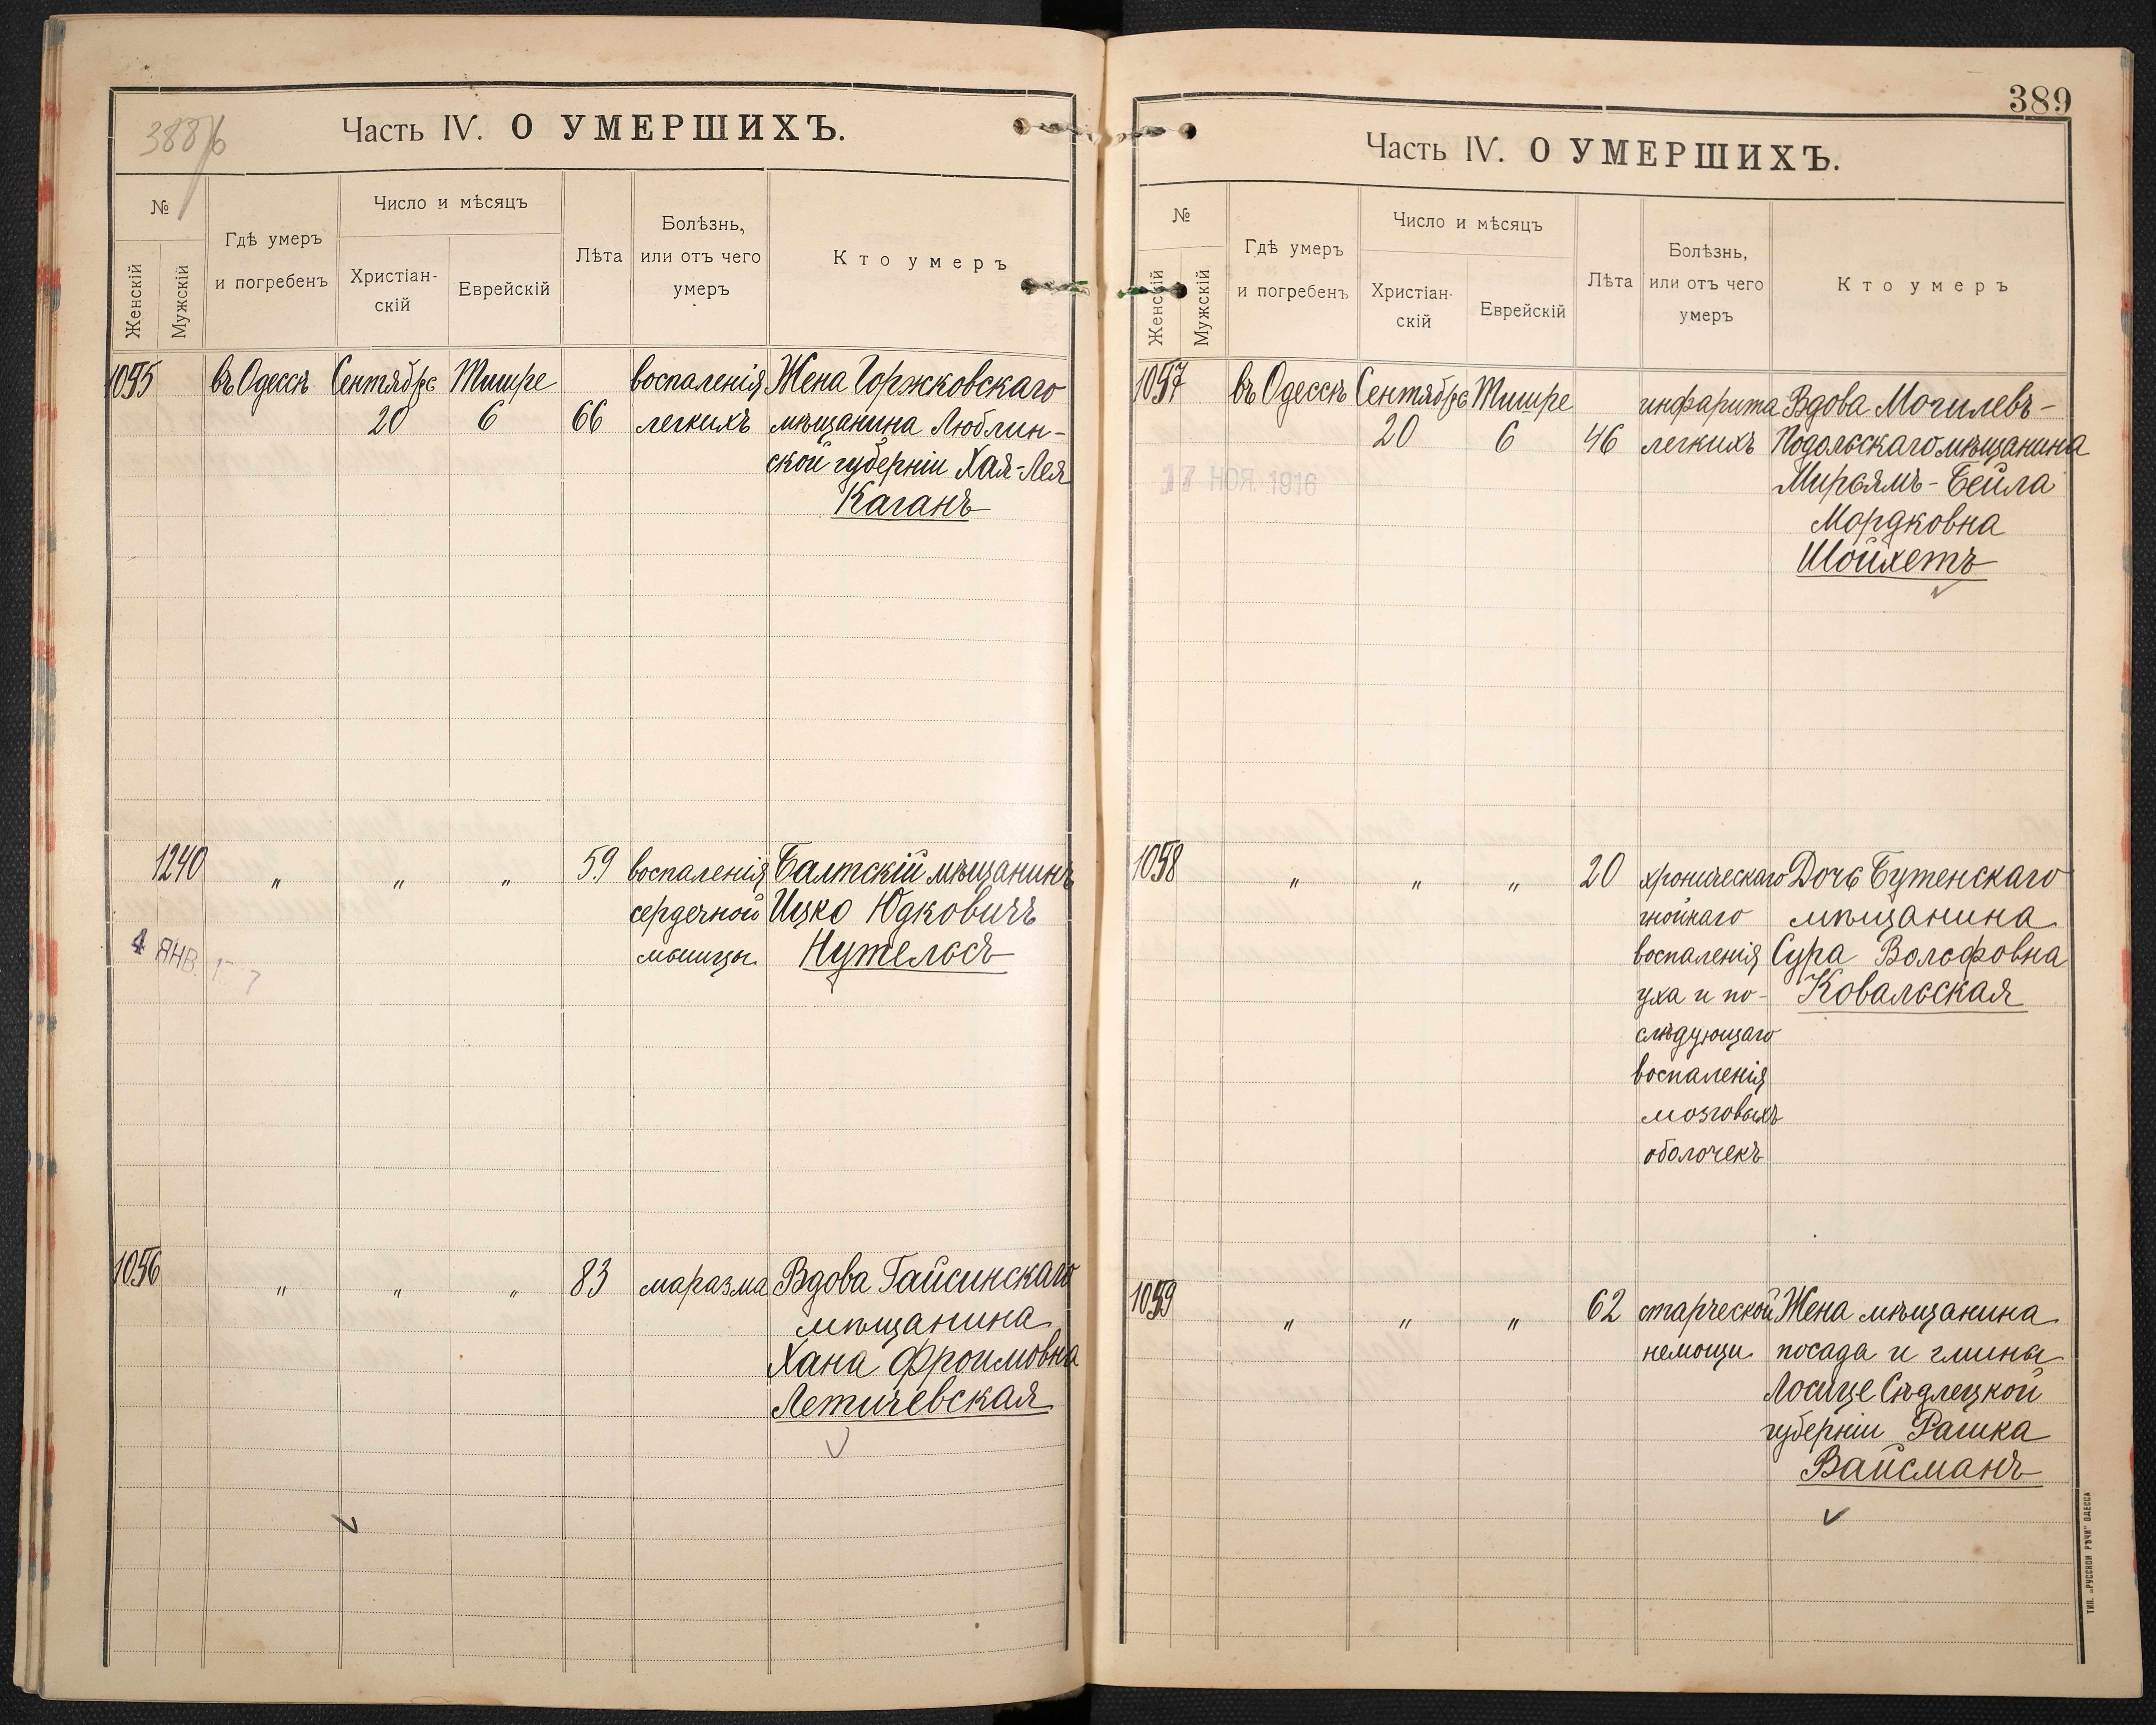 388 об
Часть IV. О УМЕРШИХЪ.
№
Женскій
Мужскій
Гдѣ умеръ
и погребенъ
Число и мѣсяцъ
Христіан-
скій
Еврейскій
Лѣта
Болѣзнь,
или отъ чего
умеръ
Кто умеръ
1055
въ Одессѣ
Сентябрь
20
Тишре
6
66
воспаленія
легкихъ
Жена Горжковскаго
мѣщанина Люблин-
ской губерніи Хая-Лея
Каганъ
1240
"
"
"
59
воспаленія
сердечной
мышцы
Балтскій мѣщанинъ
Ицко Юдковичъ
Нутельсъ
4 ЯНВ.
1056
"
"
"
83
маразма
Вдова Гайсинскаго
мѣщанина
Хана Фроимовна
Летичевская
389
Часть IV. О УМЕРШИХЪ.
№
Женскій
Мужскій
Гдѣ умеръ
и погребенъ
Число и мѣсяцъ
Христіан-
скій
Еврейскій
Лѣта
Болѣзнь,
или отъ чего
умеръ
Кто умеръ
1057
въ Одессѣ
Сентябрь
20
Тишре
6
46
инфаркта
легкихъ
Вдова Могилевъ-
Подольскаго мѣщанина
Мирьямъ-Бейла
Мордковна
Шойхетъ
17 НОЯ 1916
1058
"
"
"
20
хроническаго
гнойнаго
воспаленія
уха и по-
слѣдующаго
воспаленія
мозговыхъ
оболочекъ
Дочь Бутенскаго
мѣщанина
Сура Вольфовна
Ковальская
1059
"
"
"
62
старческой
немощи
Жена мѣщанина
посада и гмины
Лосице Сѣдлецкой
губерніи Рашка
Вайсманъ
ТИП. „РУССКОЙ РѢЧИ" ОДЕССА